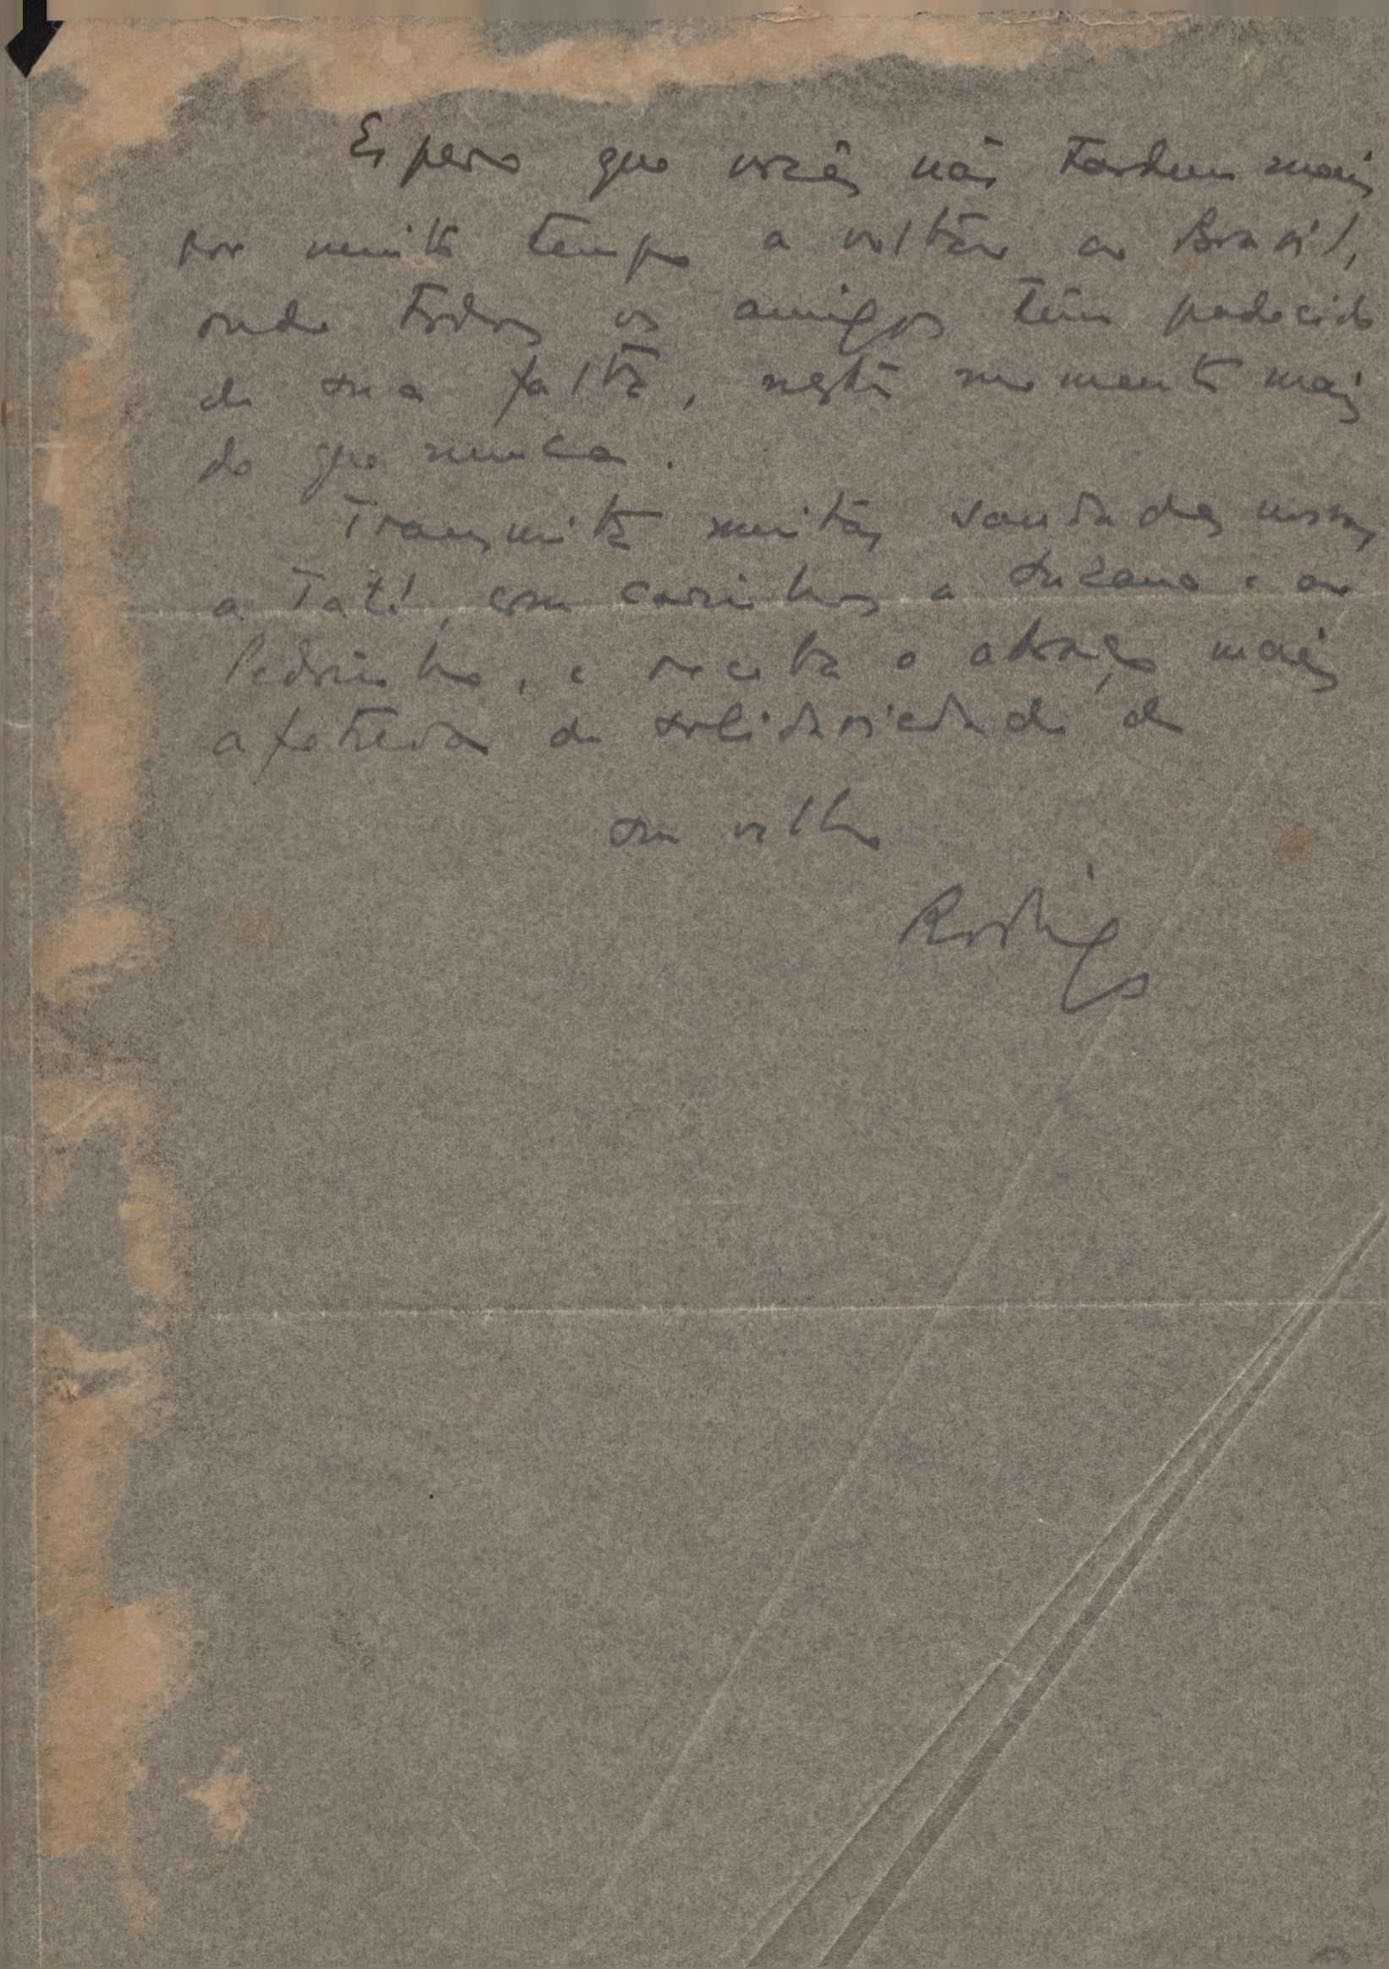 Espero que vocês não tardem mais
por muito tempo a voltar ao Brasil,
onde todos os amigos têm padecido
de sua falta, neste momento mais
do que nunca.
Transmita muitas saudades nossas
a Tati, com carinhos a Suzana e ao
Pedrinho, e receba o abraço mais
afetuoso de solidariedade de
seu velho
Rodrigo